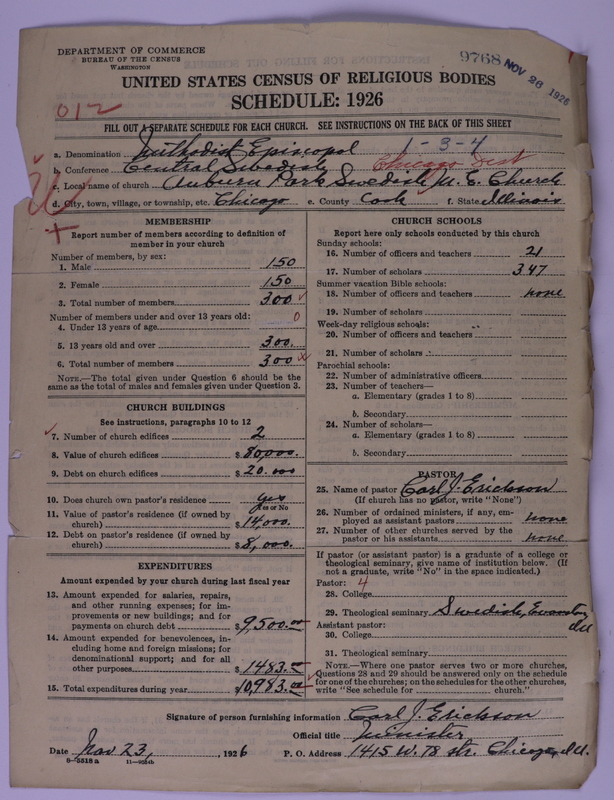 DEPARTMENT OF COMMERCE
BUREAU OF THE CENSUS
WASHINGTON
9768 NOV 26 1926
UNITED STATES CENSUS OF RELIGIOUS BODIES
SCHEDULE: 1926
012
FILL OUT A SEPARATE SCHEDULE FOR EACH CHURCH. SEE INSTRUCTIONS ON THE BACK OF THIS SHEET
1-3-4
a. Denomination Methodist Episcopal
b. Conference Central Swedish Chicago Dist
c. Local name of church Auburn Park Swedish M. E. Church
d. City, town, village, or township, etc. Chicago e. County Cook f. State Illinois
MEMBERSHIP
Report number of members according to definition of
member in your church
Number of members, by sex:
1. Male 150
2. Female 150
3. Total number of members 300
Number of members under and over 13 years old:
4. Under 13 years of age 0
5. 13 years old and over 300
6. Total number of members 300
NOTE.—The total given under Question 6 should be
same as the total of males and females given under Question 3.
CHURCH BUILDINGS
See instructions, paragraphs 10 to 12
7. Number of church edifices 2
8. Value of church edifices $80,000.
9. Debt on church edifices $20.000
10. Does church own pastor's residence yes
Yes or No
11. Value of pastor's residence (if owned by
church) $14,000.
12. Debt on pastor's residence (if owned by
church) $8,000.
EXPENDITURES
Amount expended by your church during last fiscal year
13. Amount expended for salaries, repairs,
and other running expenses; for im-
provements or new buildings; and for
payments on church debt $9,500.00
14. Amount expended for benevolences, in-
cluding home and foreign missions; for
denominational support; and for all
other purposes $1483.00
15. Total expenditures during year $10,983.00
CHURCH SCHOOLS
Report here only schools conducted by this church
Sunday schools:
16. Number of officers and teachers 21
17. Number of scholars 347
Summer vacation Bible schools:
18. Number of officers and teachers none
19. Number of scholars
Week-day religious schools:
20. Number of officers and teachers
21. Number of scholars
Parochial schools:
22. Number of administrative officers
23. Number of teachers—
a. Elementary (grades 1 to 8)
b. Secondary
24. Number of scholars—
a. Elementary (grades 1 to 8)
b. Secondary
PASTOR
25. Name of pastor Carl J. Erickson
(If church has no pastor, write "None")
26. Number of ordained ministers, if any, em-
ployed as assistant pastors none
27. Number of other churches served by the
pastor or his assistants none
If pastor (or assistant pastor) is a graduate of a college or
theological seminary, give name of institution below. (If
not a graduate, write "No" in the space indicated.)
Pastor: 4
28. College
29. Theological seminary Swedish, Evanston
Assistant pastor: Ill
30. College
31. Theological seminary
NOTE.—Where one pastor serves two or more churches,
Questions 28 and 29 should be answered only on the schedule
for one of the churches; on the schedules for the other churches,
write "See schedule for church."
Signature of person furnishing information Carl J. Erickson
Official title Minister
Date Nov 23, 1926 P. O. Address 1415 W. 78 str. Chicago, Ill.
8-5518a